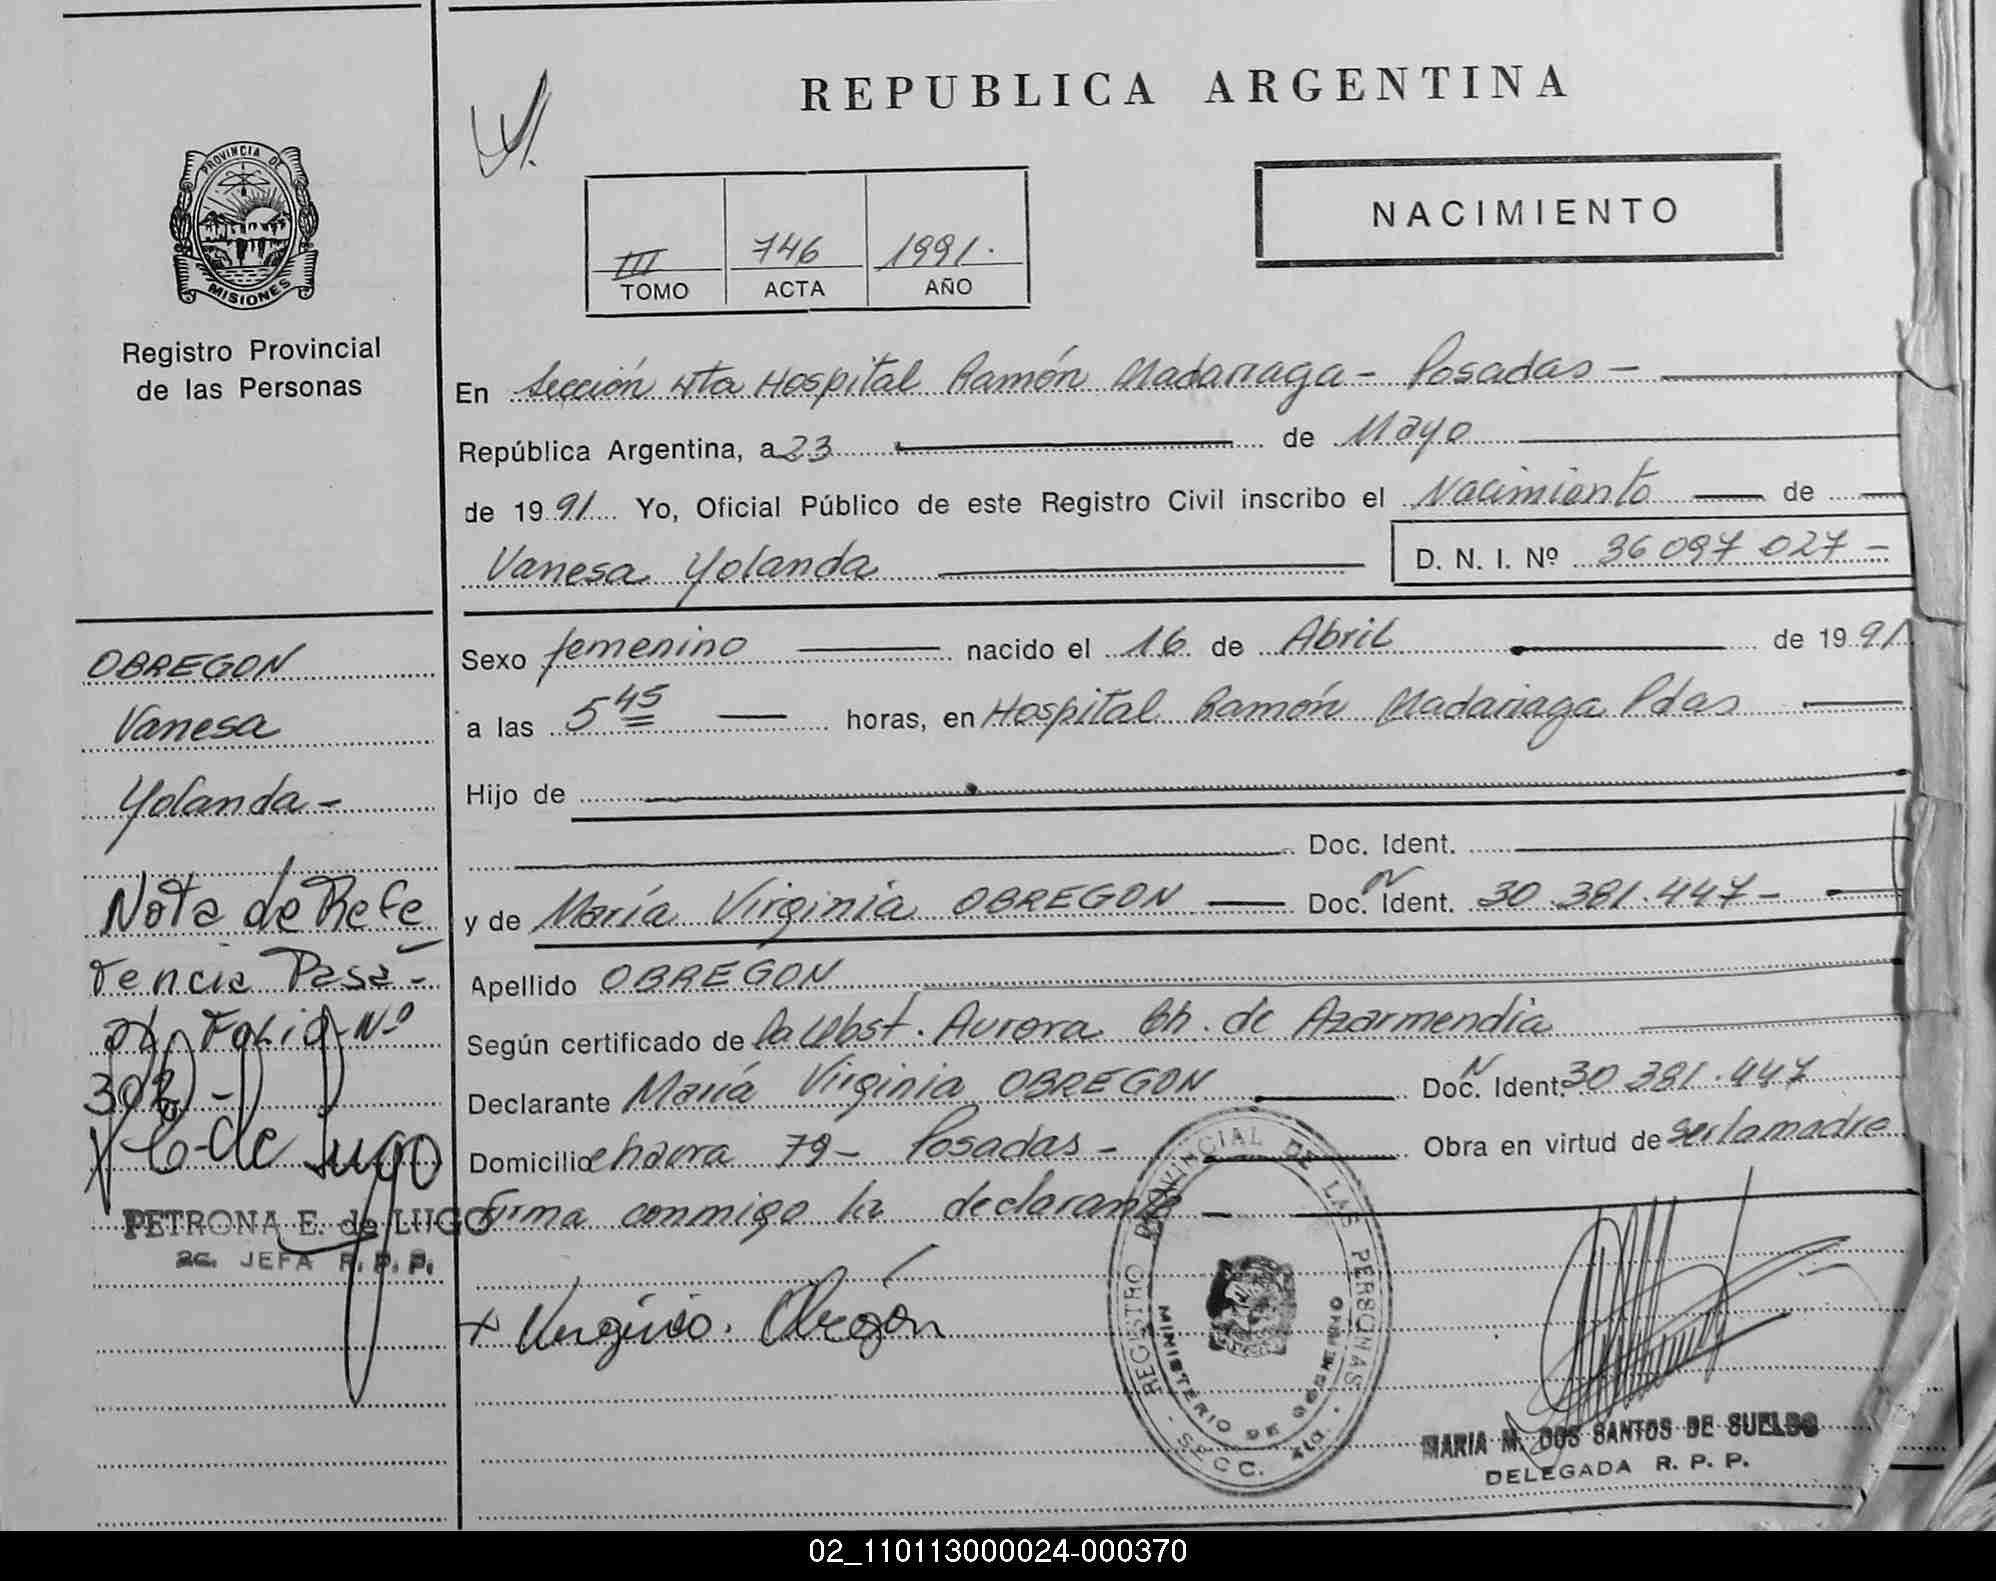 REPUBLICA ARGENTINA
PROVINCIA DE
MISIONES
Registro Provincial
de las Personas
NACIMIENTO
III 746 1991.
TOMO ACTA AÑO
En Sección 4ta Hospital Ramón Madariaga - Posadas -
República Argentina, a 23 de Mayo
de 1991 Yo, Oficial Público de este Registro Civil inscribo el Nacimiento de
Vanesa Yolanda D. N. I. Nº 36 097 027 -
OBREGON
Vanesa
Yolanda -
Nota de Refe
rencia Pasa -
Folio Nº
302 -
E. de Lugo
PETRONA E. de LUGO
2c. JEFA R. P. P.
Sexo femenino nacido el 16 de Abril de 1991
a las 5 45 horas, en Hospital Ramón Madariaga Pdas
Hijo de
Doc. Ident.
y de María Virginia OBREGON Doc. Ident. 30.381.447 -
Apellido OBREGON
Según certificado de la Obst. Aurora Ch. de Azarmendia
Declarante María Virginia OBREGON Doc. Ident. 30 381.447
Domicilio chacra 79 - Posadas - Obra en virtud de ser la madre
Firma conmigo la declarante -
+ Virginia Obregón
REGISTRO PROVINCIAL DE LAS PERSONAS
MINISTERIO DE GOBIERNO
SECC. 4ta
MARIA M. DOS SANTOS DE SUELDO
DELEGADA R. P. P.
02_110113000024-000370